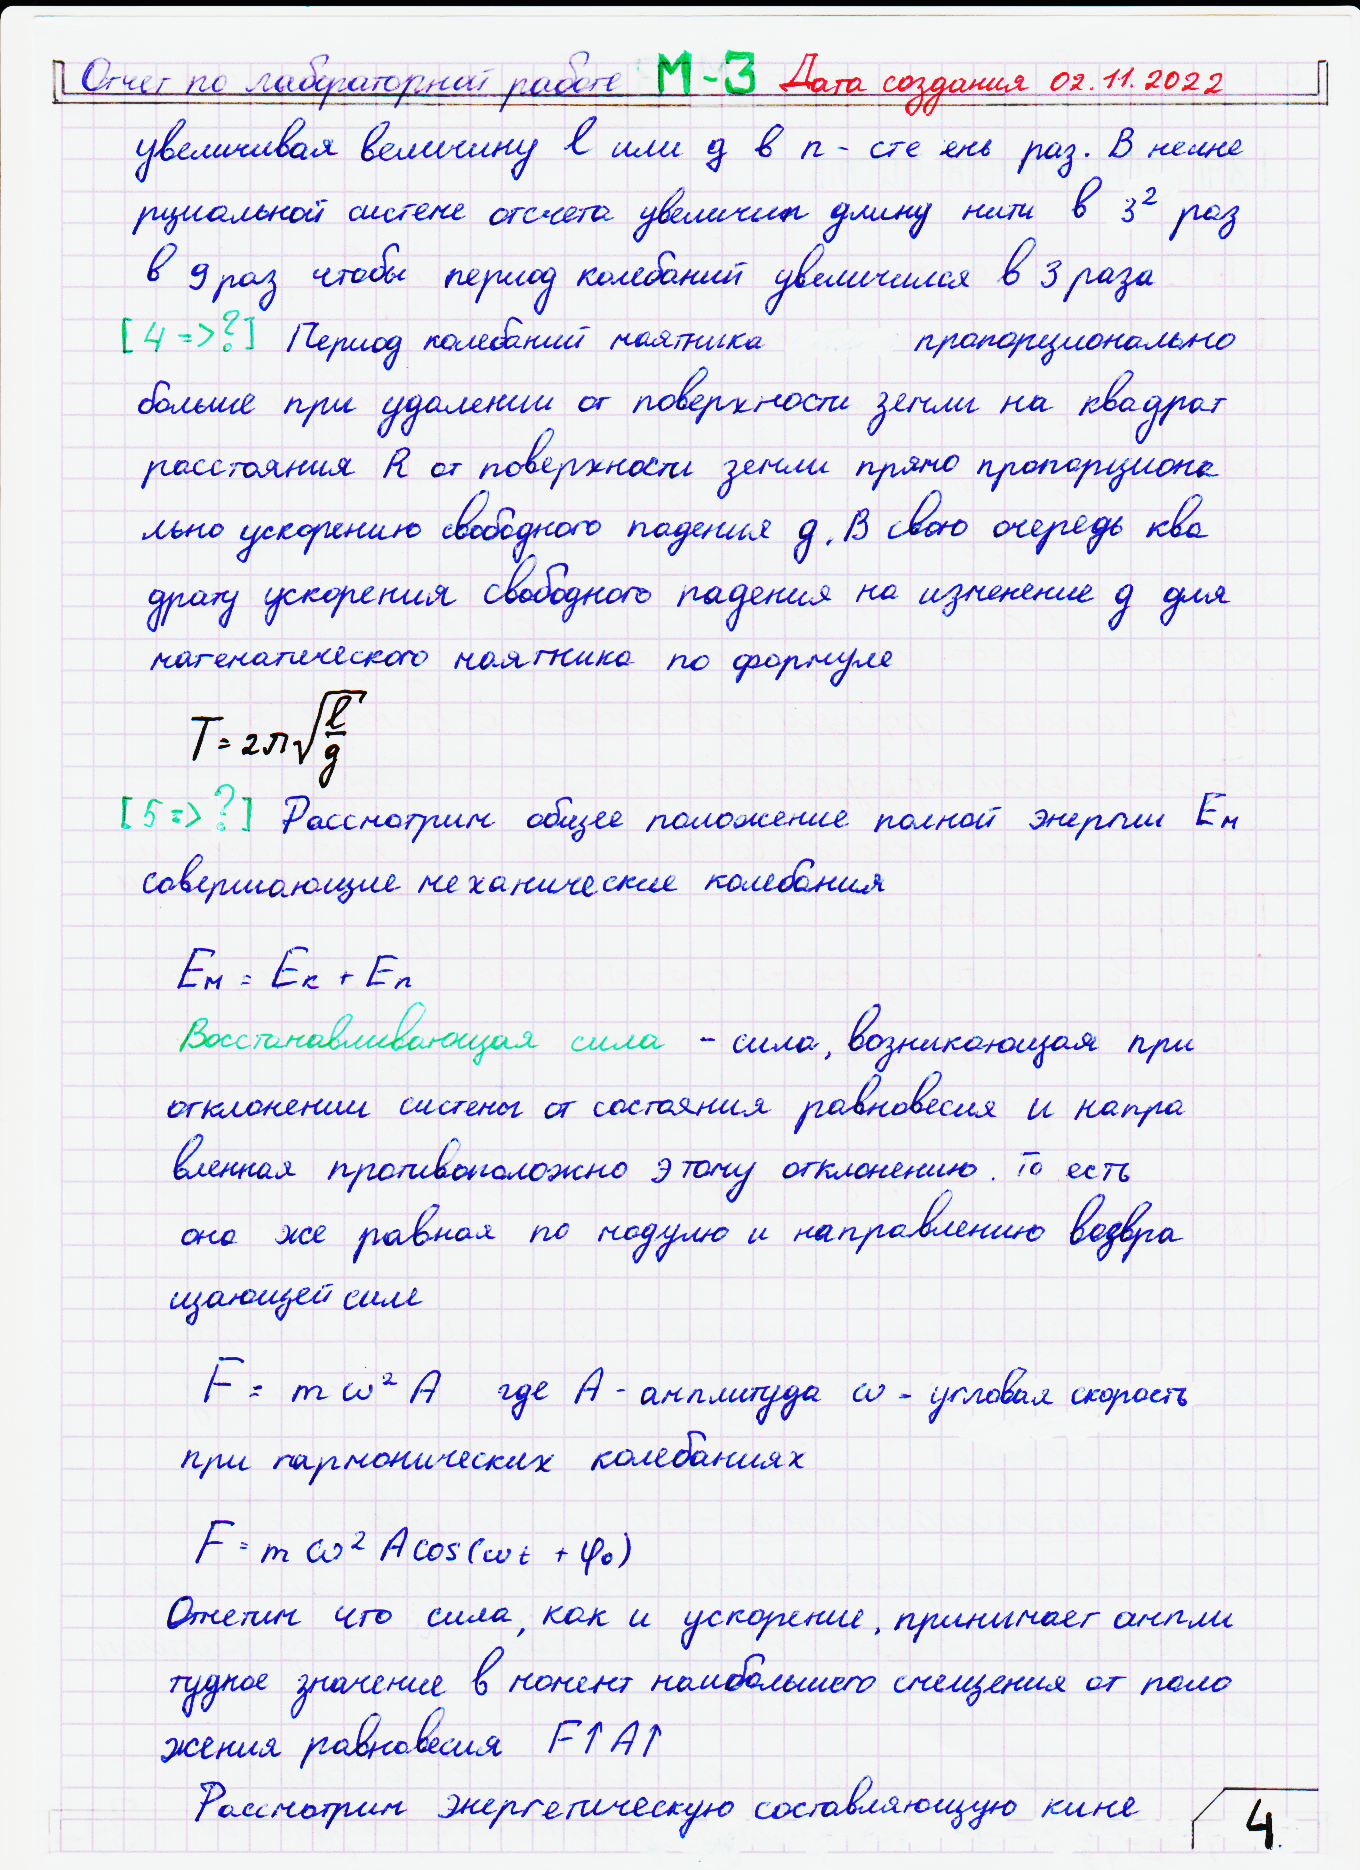 Отчет по лабораторной работе М-3 Дата создания 02.11.2022
увеличивая величину l или g в n - сте ень раз. В неине
рциальной системе отсчета увеличим длину нити в 3² раз
в 9 раз чтобы период колебаний увеличился в 3 раза
[4=>?] Период колебаний маятника пропорционально
больше при удалении от поверхности земли на квадрат
расстояния R от поверхности земли прямо пропорциона
льно ускорению свободного падения g. В свою очередь ква
драту ускорения свободного падения на изменение g для
математического маятника по формуле
T = 2π√(l/g)
[5=>?] Рассмотрим общее положение полной энергии Eм
совершающие механические колебания
Eм = Eк + Eп
Восстанавливающая сила - сила, возникающая при
отклонении системы от состояния равновесия и напра
вленная противоположно этому отклонению. То есть
она же равная по модулю и направлению возвра
щающей силе
F = mω²A где A - амплитуда ω - угловая скорость
при гармонических колебаниях
F = mω²Acos(ωt + φ₀)
Отметим что сила, как и ускорение, принимает ампли
тудное значение в момент наибольшего смещения от поло
жения равновесия F↑ A↑
Рассмотрим энергетическую составляющую кине
4.